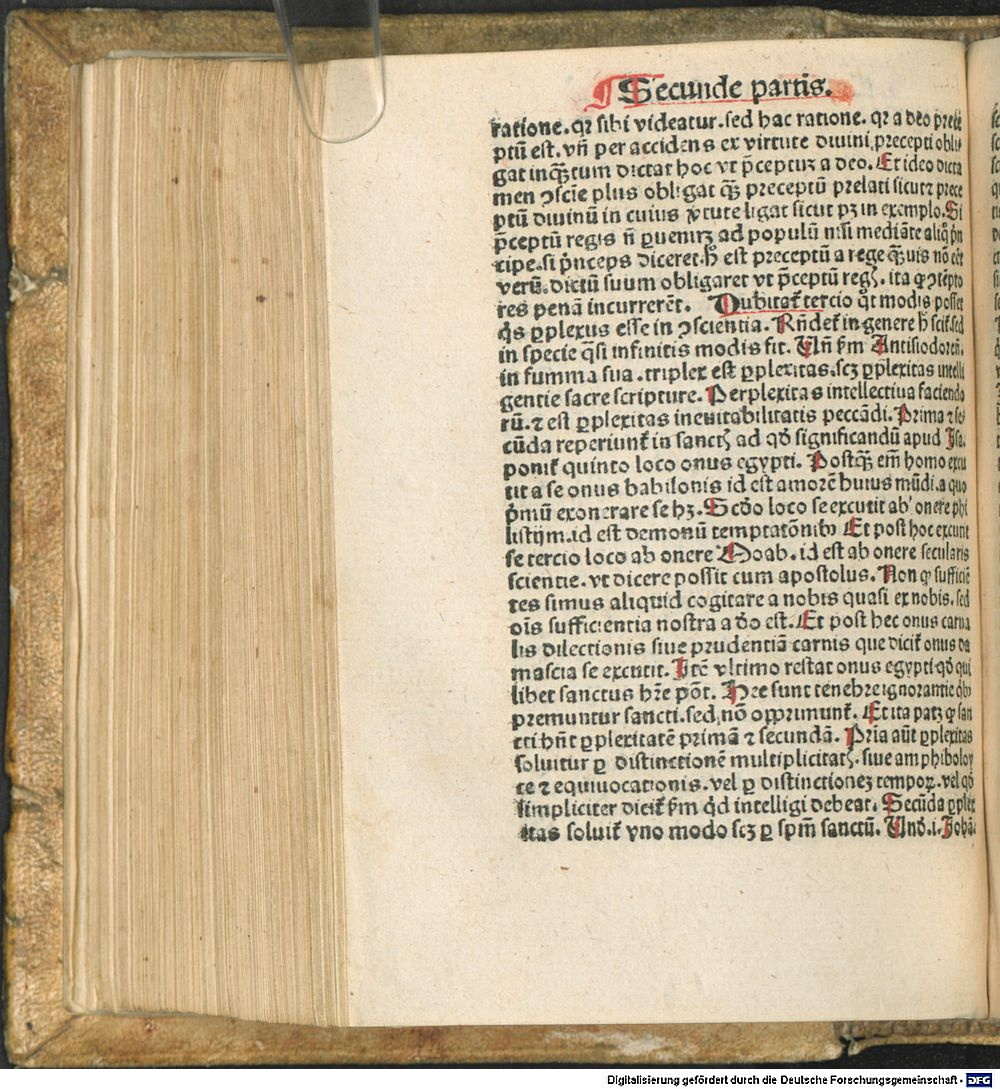 Secunde partis.
ratione. qꝛ sibi videatur. sed hac ratione. qꝛ a deo p̄ce
ptū est. vn̄ per accidens ex virtute diuini precepti obli
gat inqꝫtum dictat hoc vt p̄ceptuꝫ a deo. Et ideo dicta
men ꝯsciē plus obligat qꝫ preceptū prelati sicut ⁊ prece
ptū diuinū in cuius v̓tute ligat sicut pꝫ in exemplo. Si
p̄ceptū regis n̄ ꝑuenirꝫ ad populū nisi mediāte aliq̊ pn̓
cipe. si pn̓ceps diceret. h̓ est preceptū a rege qꝫuis nō eēt
verū. dictū suum obligaret vt p̄ceptū regꝭ. ita ꝙ ꝯtēpto
res penā incurrerēt. Dubitat̓ tercio q̊t modis posset
qͥs ꝑplexus esse in ꝯscientia. Rn̄det̓ in genere h̓ scit̓. sed
in specie q̄si infinitis modis fit. Vn̄ ẜm Antisiodoreñ.
in summa sua. triplex est ꝑplexitas. scꝫ ꝑplexitas intelli
gentie sacre scripture. Perplexitas intellectiua faciendo
rū. ⁊ est ꝑplexitas ineuitabilitatis peccādi. Prima ⁊ se
cūda reperiunt̓ in sanctꝭ ad qd̓ significandū apud Isa.
ponit̓ quinto loco onus egypti. Postqꝫ em̄ homo excu
tit a se onus babilonis id est amorē huius mūdi. a quo
pͥmū exonerare se hꝫ. Scd̓o loco se excutit ab onere phi
listijm. id est demonū temptatōnibꝰ Et post hoc excutit
se tercio loco ab onere Moab. id est ab onere secularis
scientie. vt dicere possit cum apostolus. Non ꝙ sufficiē
tes simus aliquid cogitare a nobis quasi ex nobis. sed
oīs sufficientia nostra a deo est. Et post hec onus carna
lis dilectionis siue prudentiā carnis que dicit̓ onus da
mascia se excutit. Itē vltimo restat onus egypti qd̓ qui
libet sanctus hr̄e pōt. Hee sunt tenebre ignorantie qͥbꝰ
premuntur sancti. sed nō opprimunt̓. Et ita patꝫ ꝙ san
cti hn̄t ꝑplexitatē primā ⁊ secundā. Pria aūt ꝑplexitas
soluitur ꝑ distinctionē multiplicitatꝭ. siue amphiboloy
te ⁊ equiuocationis. vel ꝑ distinctioneꝫ tempoꝝ. vel qd̓
simpliciter dicit̓ ẜm qd̓ intelligi debeat. Secūda ꝑplex
itas soluit̓ vno modo scꝫ ꝑ spm̄ sanctū. Vnd̓. i. Johā.
Digitalisierung gefördert durch die Deutsche Forschungsgemeinschaft - DFG